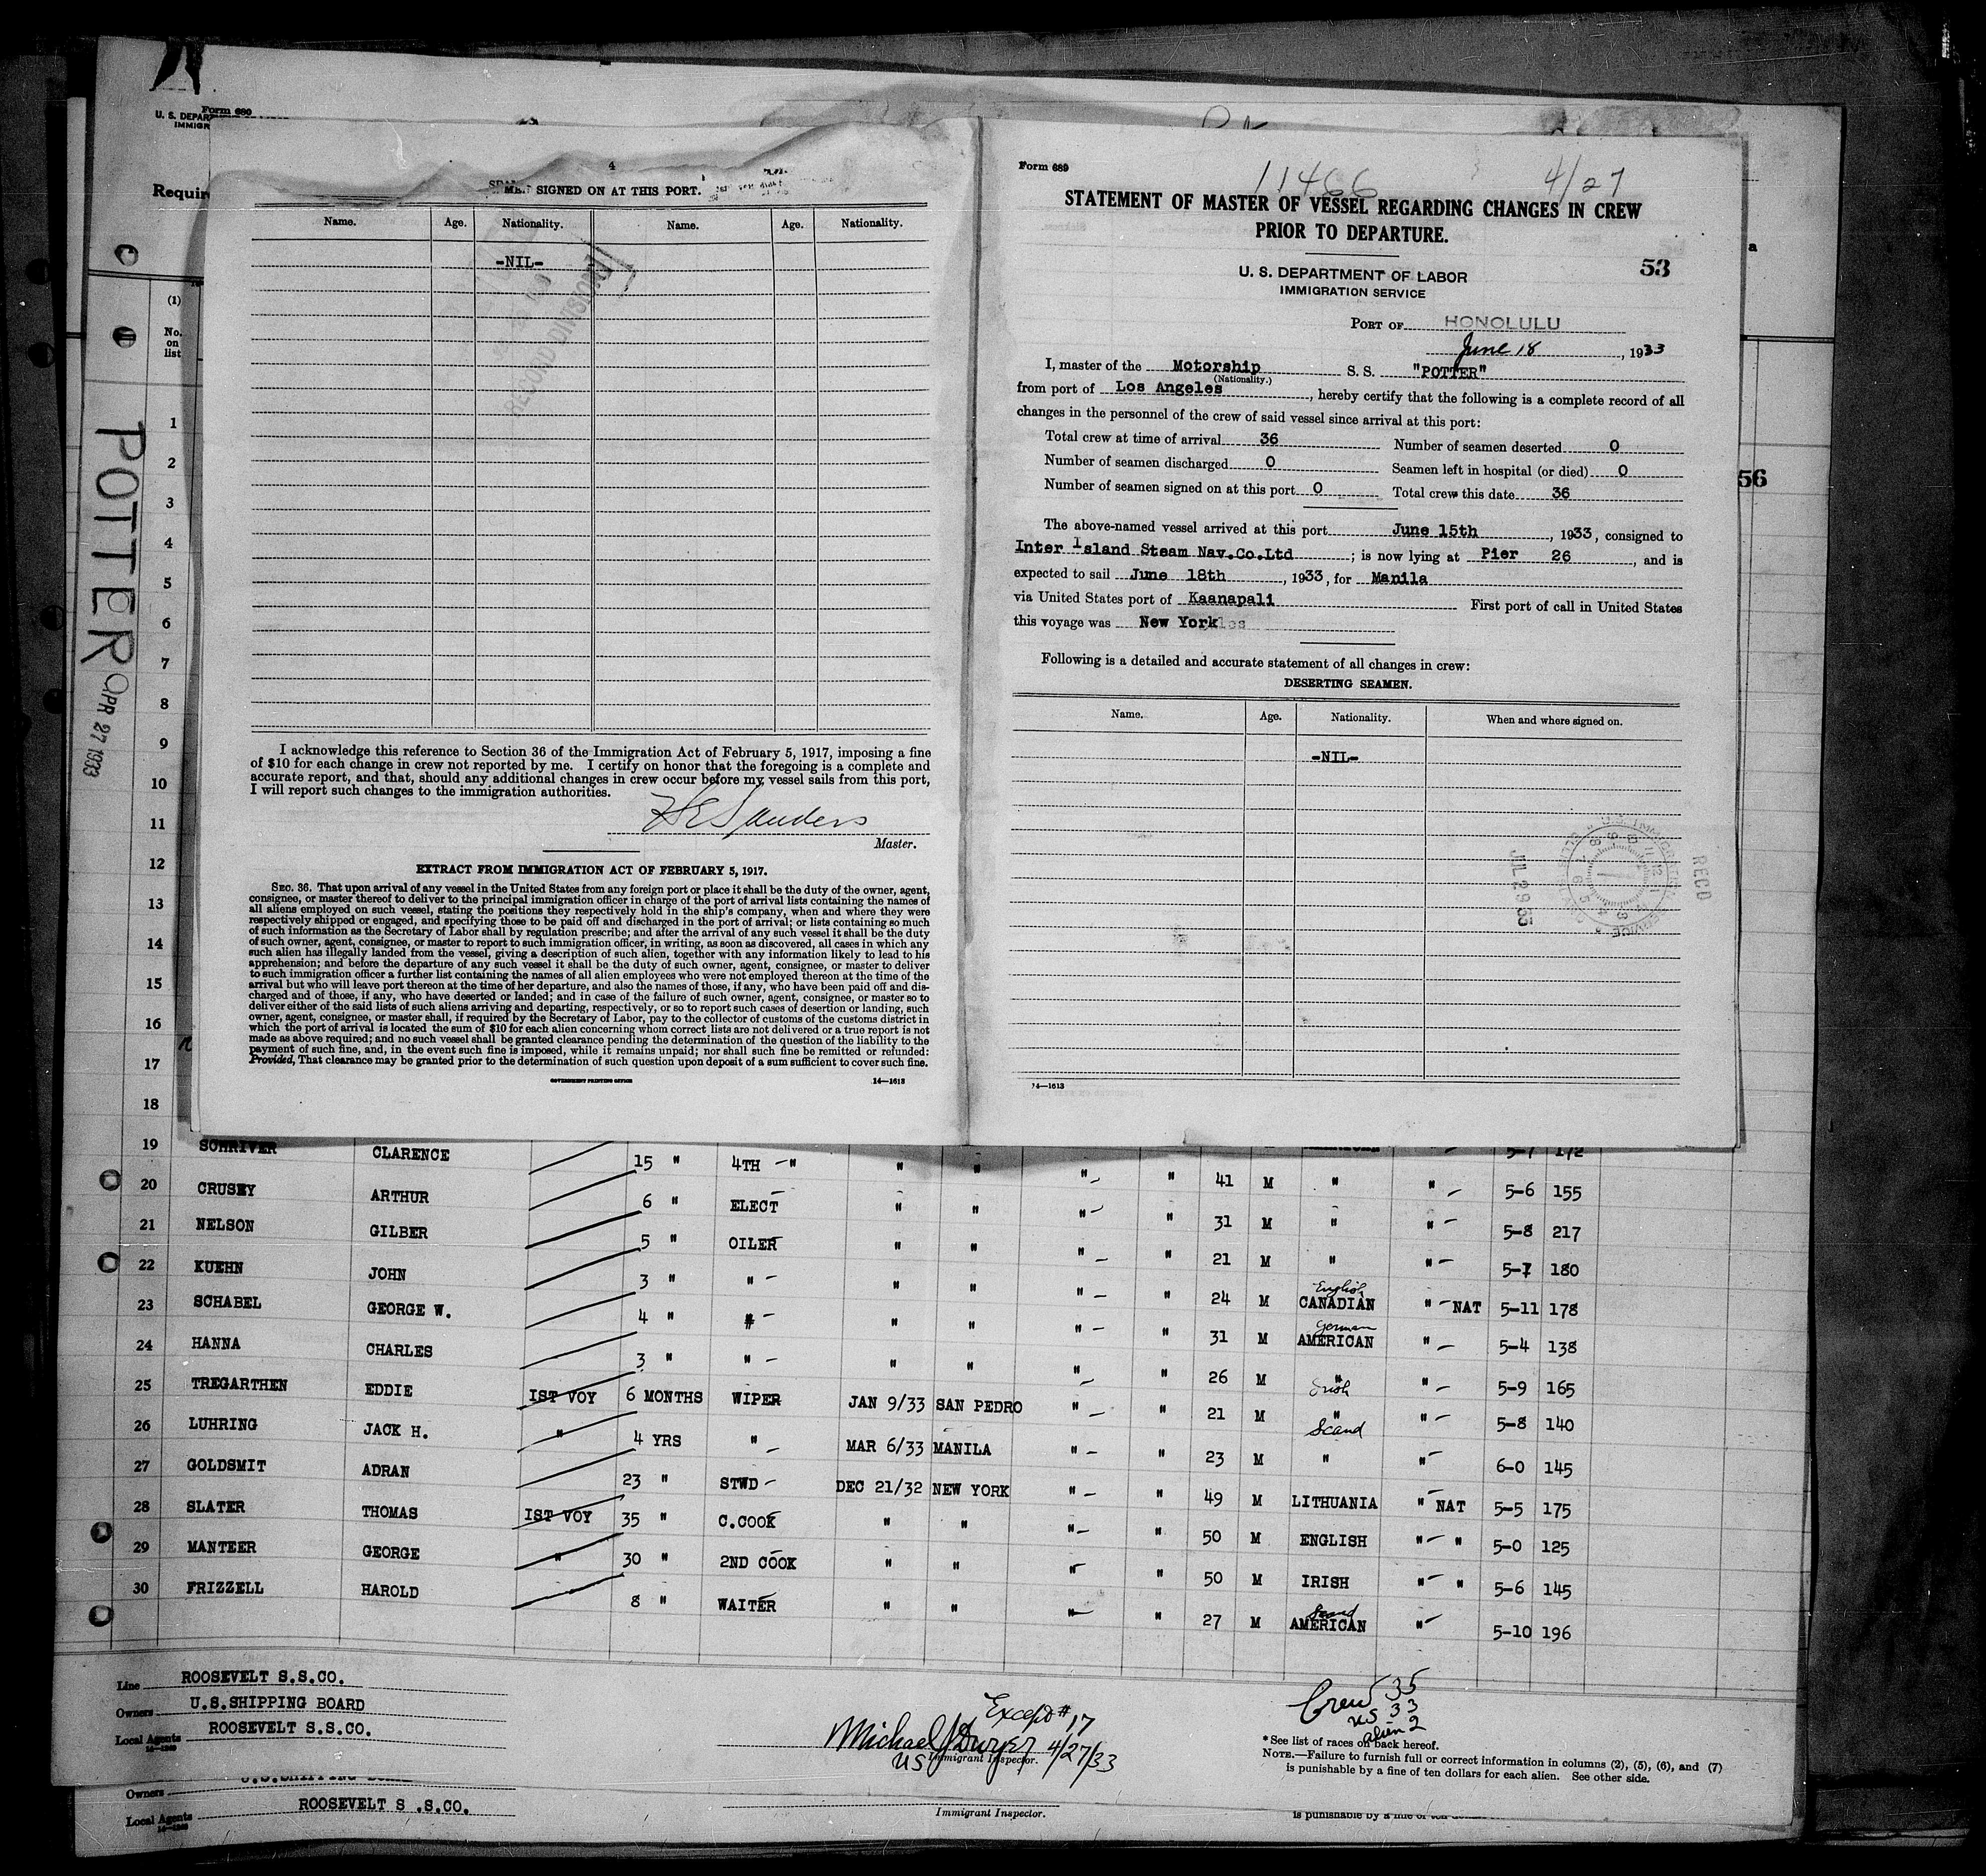 Form 680
U. S. DEPAR
IMMIGR
Requir
(1)
No. on list
1
2
3
4
5
6
7
8
9
10
11
12
13
14
15
16
17
18
POTTER
APR 27 1933
56
4
SIGNED ON AT THIS PORT.
Name. Age. Nationality. Name. Age. Nationality.
-NIL-
RECORD DIVISION
I acknowledge this reference to Section 36 of the Immigration Act of February 5, 1917, imposing a fine
of $10 for each change in crew not reported by me. I certify on honor that the foregoing is a complete and
accurate report, and that, should any additional changes in crew occur before my vessel sails from this port,
I will report such changes to the immigration authorities.
Sanders
Master.
EXTRACT FROM IMMIGRATION ACT OF FEBRUARY 5, 1917.
SEC. 36. That upon arrival of any vessel in the United States from any foreign port or place it shall be the duty of the owner, agent,
consignee, or master thereof to deliver to the principal immigration officer in charge of the port of arrival lists containing the names of
all aliens employed on such vessel, stating the positions they respectively hold in the ship's company, when and where they were
respectively shipped or engaged, and specifying those to be paid off and discharged in the port of arrival; or lists containing so much
of such information as the Secretary of Labor shall by regulation prescribe; and after the arrival of any such vessel it shall be the duty
of such owner, agent, consignee, or master to report to such immigration officer, in writing, as soon as discovered, all cases in which any
such alien has illegally landed from the vessel, giving a description of such alien, together with any information likely to lead to his
apprehension; and before the departure of any such vessel it shall be the duty of such owner, agent, consignee, or master to deliver
to such immigration officer a further list containing the names of all alien employees who were not employed thereon at the time of the
arrival but who will leave port thereon at the time of her departure, and also the names of those, if any, who have been paid off and dis-
charged and of those, if any, who have deserted or landed; and in case of the failure of such owner, agent, consignee, or master so to
deliver either of the said lists of such aliens arriving and departing, respectively, or so to report such cases of desertion or landing, such
owner, agent, consignee, or master shall, if required by the Secretary of Labor, pay to the collector of customs of the customs district in
which the port of arrival is located the sum of $10 for each alien concerning whom correct lists are not delivered or a true report is not
made as above required; and no such vessel shall be granted clearance pending the determination of the question of the liability to the
payment of such fine, and, in the event such fine is imposed, while it remains unpaid; nor shall such fine be remitted or refunded:
Provided, That clearance may be granted prior to the determination of such question upon deposit of a sum sufficient to cover such fine.
GOVERNMENT PRINTING OFFICE 14—1613
Form 689
11466 4/27
STATEMENT OF MASTER OF VESSEL REGARDING CHANGES IN CREW
PRIOR TO DEPARTURE.
U. S. DEPARTMENT OF LABOR
IMMIGRATION SERVICE
53
PORT OF HONOLULU
June 18, 1933
I, master of the Motorship S. S. "POTTER"
(Nationality.)
from port of Los Angeles, hereby certify that the following is a complete record of all
changes in the personnel of the crew of said vessel since arrival at this port:
Total crew at time of arrival 36 Number of seamen deserted 0
Number of seamen discharged 0 Seamen left in hospital (or died) 0
Number of seamen signed on at this port 0 Total crew this date 36
The above-named vessel arrived at this port June 15th, 1933, consigned to
Inter Island Steam Nav.Co.Ltd; is now lying at Pier 26, and is
expected to sail June 18th, 1933, for Manila
via United States port of Kaanapali First port of call in United States
this voyage was New York
Following is a detailed and accurate statement of all changes in crew:
DESERTING SEAMEN.
Name. Age. Nationality. When and where signed on.
-NIL-
RECD
JUL 29 33
14—1613
19 SCHRIVER CLARENCE 15 " 4TH -" " " " " 41 M " " 5-7 172
20 CRUSEY ARTHUR 6 " ELECT " " " " 31 M " " 5-6 155
21 NELSON GILBER 5 " OILER " " " " 21 M " " 5-8 217
22 KUEHN JOHN 3 " " " " " " 24 M English CANADIAN " NAT 5-7 180
23 SCHABEL GEORGE W. 4 " " " " " " 31 M German AMERICAN " 5-11 178
24 HANNA CHARLES 3 " " " " " " 26 M Irish " " 5-4 138
25 TREGARTHEN EDDIE 1ST VOY 6 MONTHS WIPER JAN 9/33 SAN PEDRO " " 21 M " " 5-9 165
26 LUHRING JACK H. " 4 YRS " MAR 6/33 MANILA " " 23 M Scand " " 5-8 140
27 GOLDSMIT ADRAN 23 " STWD DEC 21/32 NEW YORK " " 49 M LITHUANIA " NAT 6-0 145
28 SLATER THOMAS 1ST VOY 35 " C.COOK " " " " 50 M ENGLISH " " 5-5 175
29 MANTEER GEORGE " 30 " 2ND COOK " " " " 50 M IRISH " " 5-0 125
30 FRIZZELL HAROLD 8 " WAITER " " " " 27 M Scand AMERICAN " 5-6 145
5-10 196
Line ROOSEVELT S.S.CO.
Owners U.S.SHIPPING BOARD
Local Agents ROOSEVELT S.S.CO.
14-1240
Except #17
Michael J Dwyer 4/27/33
US Immigrant Inspector.
Crew 35
US 33
alien 2
*See list of races on back hereof.
NOTE.—Failure to furnish full or correct information in columns (2), (5), (6), and (7)
is punishable by a fine of ten dollars for each alien. See other side.
Owners U.S.SHIPPING
Local Agents ROOSEVELT S .S.CO.
Immigrant Inspector.
is punishable by a fine of ten